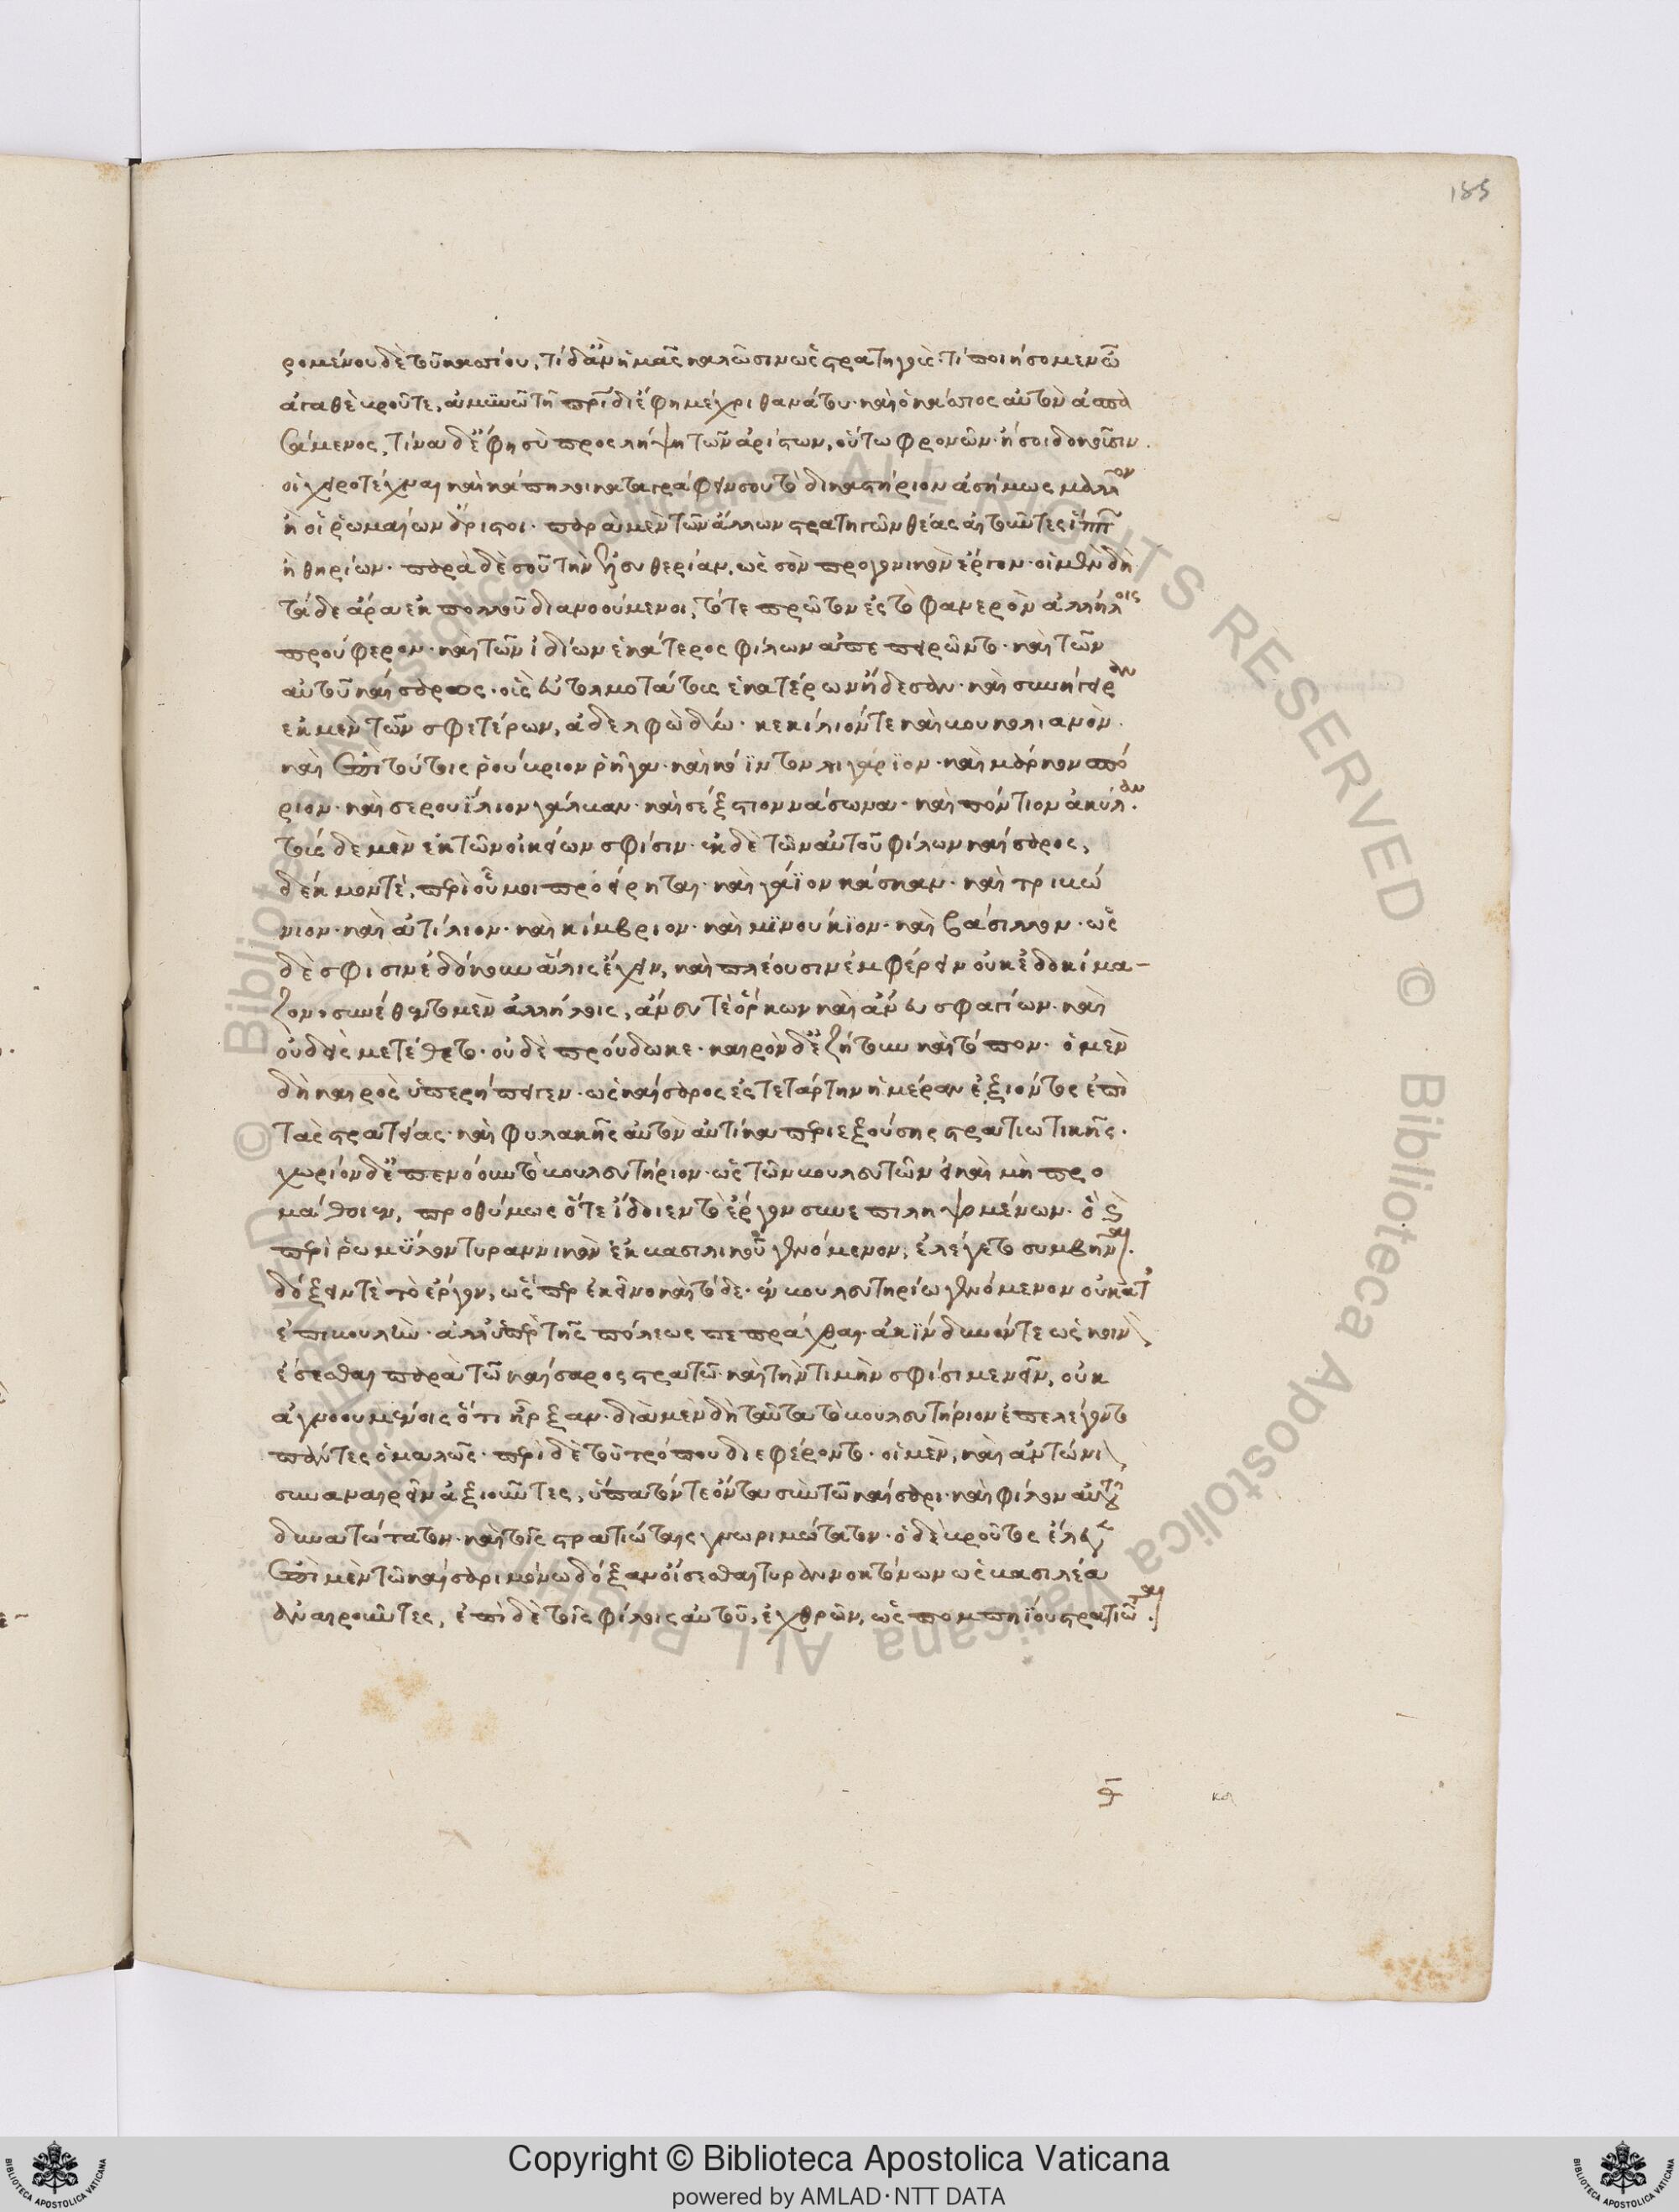 185
ρομένου δὲ τοῦ κασσίου, τί δ' ἂν ἡμᾶς καλῶσιν ὡς στρατηγούς· τί ποιήσομεν ὦ
ἀγαθὲ βροῦτε, ἀμυνῶ τῇ πατρίδι ἔφη μέχρι θανάτου· καὶ ὁ κάσσιος αὐτὸν ἀσπα
σάμενος, τίνα δ' ἔφη σὺ προσλήψῃ τῶν ἀρίστων, οὕτω φρονῶν· ἤ σοι δοκοῦσιν
οἱ χειροτέχναι καὶ κάπηλοι καταγράφειν σου τὸ δικαστήριον ἀσήμως μᾶλλον
ἢ οἱ ῥωμαίων ἄριστοι· παρὰ μὲν τῶν ἄλλων στρατηγῶν θέας αἰτοῦντες ἵππ
ἢ θηρίων· παρὰ δὲ σοῦ τὴν ἐλευθερίαν, ὡς σὸν προγονικὸν ἔργον· οἱ μὲν δὴ
τάδε ἄρα ἐκ πολλοῦ διανοούμενοι, τότε πρῶτον ἐς τὸ φανερὸν ἀλλήλοις
προύφερον· καὶ τῶν ἰδίων ἑκάτερος φίλων ἀπεπειρῶντο· καὶ τῶν
αὐτοῦ καίσαρος· οὓς εὐτολμοτάτους ἑκατέρων ᾔδεσαν· καὶ συνήγειραν
ἐκ μὲν τῶν σφετέρων, ἀδελφὼ δύω· κεκίλιόν τε καὶ βουκολιανὸν·
καὶ ἐπὶ τούτοις ῥούβριον ῥῆγα· καὶ κόϊντον λιγάριον· καὶ μάρκον σπό
ριον· καὶ σερουΐλιον γάλβαν· καὶ σέξστον νάσωνα· καὶ πόντιον ἀκύλαν·
τούσδε μὲν ἐκ τῶν οἰκείων σφίσιν· ἐκ δὲ τῶν αὐτοῦ φίλων καίσαρος,
δέκμόν τε, περὶ οὗ μοι προείρηται· καὶ γάϊον κάσκαν· καὶ τριβώ
νιον· καὶ ἀτίλιον· καὶ κίμβριον· καὶ μινούκιον· καὶ βάσιλλον· ὡς
δὲ σφίσιν ἐδόκουν ἅλις ἔχειν, καὶ πλέουσιν ἐκφέρειν οὐκ ἐδοκίμα-
ζον, συνέθεντο μὲν ἀλλήλοις, ἄνευ τε ὅρκων καὶ ἄνευ σφαγίων· καὶ
οὐδεὶς μετέθετο· οὐδὲ προύδωκε· καιρὸν δ' ἐζήτουν καὶ τόπον· ὁ μὲν
δὴ καιρὸς ὑπερήπειγεν· ὡς καίσαρος ἐς τετάρτην ἡμέραν ἐξιόντος ἐπὶ
τὰς στρατείας· καὶ φυλακῆς αὐτὸν αὐτίκα περιεξούσης στρατιωτικῆς·
χωρίον δ' ἐπενόουν τὸ βουλευτήριον· ὡς τῶν βουλευτῶν εἰ καὶ μὴ προ
μάθοιεν, προθύμως ὅτε ἴδοιεν τὸ ἔργον συνεπιληψομένων· ὃ ς
περὶ ῥωμύλον τυραννικὸν ἐκ βασιλικοῦ γενόμενον, ἐλέγετο συμβῆναι.
δόξειν τε τὸ ἔργον, ὥσπερ ἐκεῖνο καὶ τόδε· ἐν βουλευτηρίω γενόμενον οὐ κατ'
ἐπιβουλὴν· ἀλλ' ὑπὲρ τῆς πόλεως πεπρᾶχθαι· ἀκίνδυνόν τε ὡς κοινὸν
ἔσεσθαι παρὰ τῶ καίσαρος στρατῶ· καὶ τὴν τιμὴν σφίσι μενεῖν, οὐκ
ἀγνοουμένοις ὅτι ἦρξαν· διὰ μὲν δὴ ταῦτα τὸ βουλευτήριον ἐπελέγοντο
πάντες ὁμαλῶς· περὶ δὲ τοῦ τρόπου διεφέροντο· οἱ μὲν, καὶ ἀντώνι
συναναιρεῖν ἀξιοῦντες, ὕπατόν τε ὄντα σὺν τῶ καίσαρι· καὶ φίλον αὐτοῦ
δυνατώτατον· καὶ τοῖς στρατιώταις γνωριμώτατον· ὁ δὲ βροῦτος ἔλεγεν
ἐπὶ μὲν τῶ καίσαρι μόνω δόξαν οἴσεσθαι τυραννοκτόνων ὡς βασιλέα
ἀναιροῦντες, ἐπὶ δὲ τοῖς φίλοις αὐτοῦ, ἐχθρῶν, ὡς πομπηΐου στρατιῶται.
Copyright © Biblioteca Apostolica Vaticana
powered by AMLAD·NTT DATA